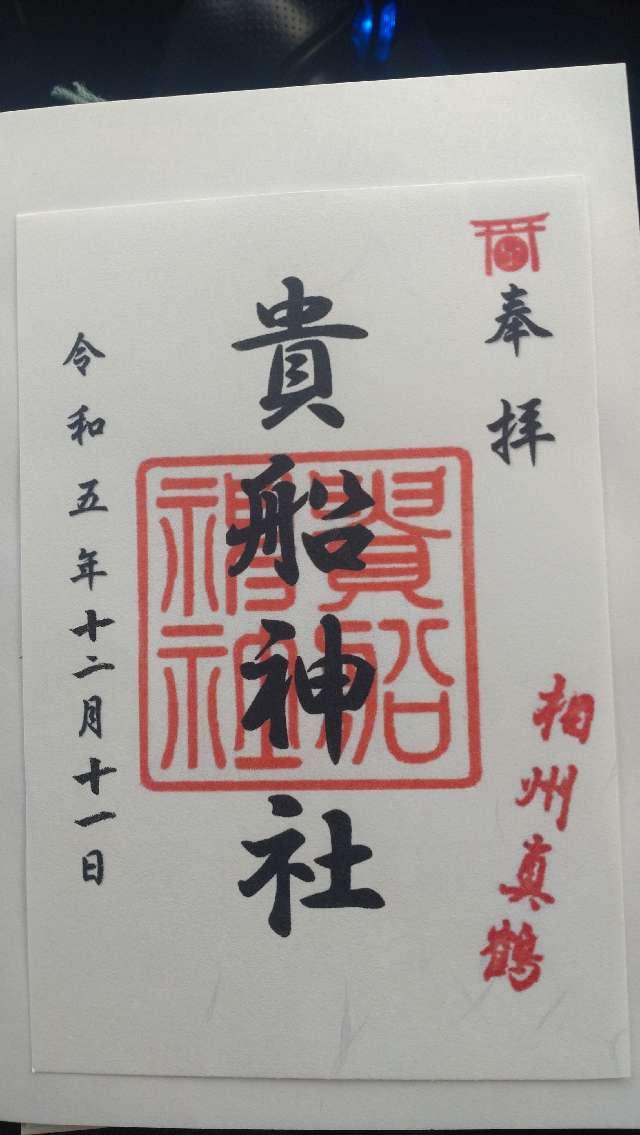 奉拝
相州真鶴
貴船神社
貴船神社
令和五年十二月十一日